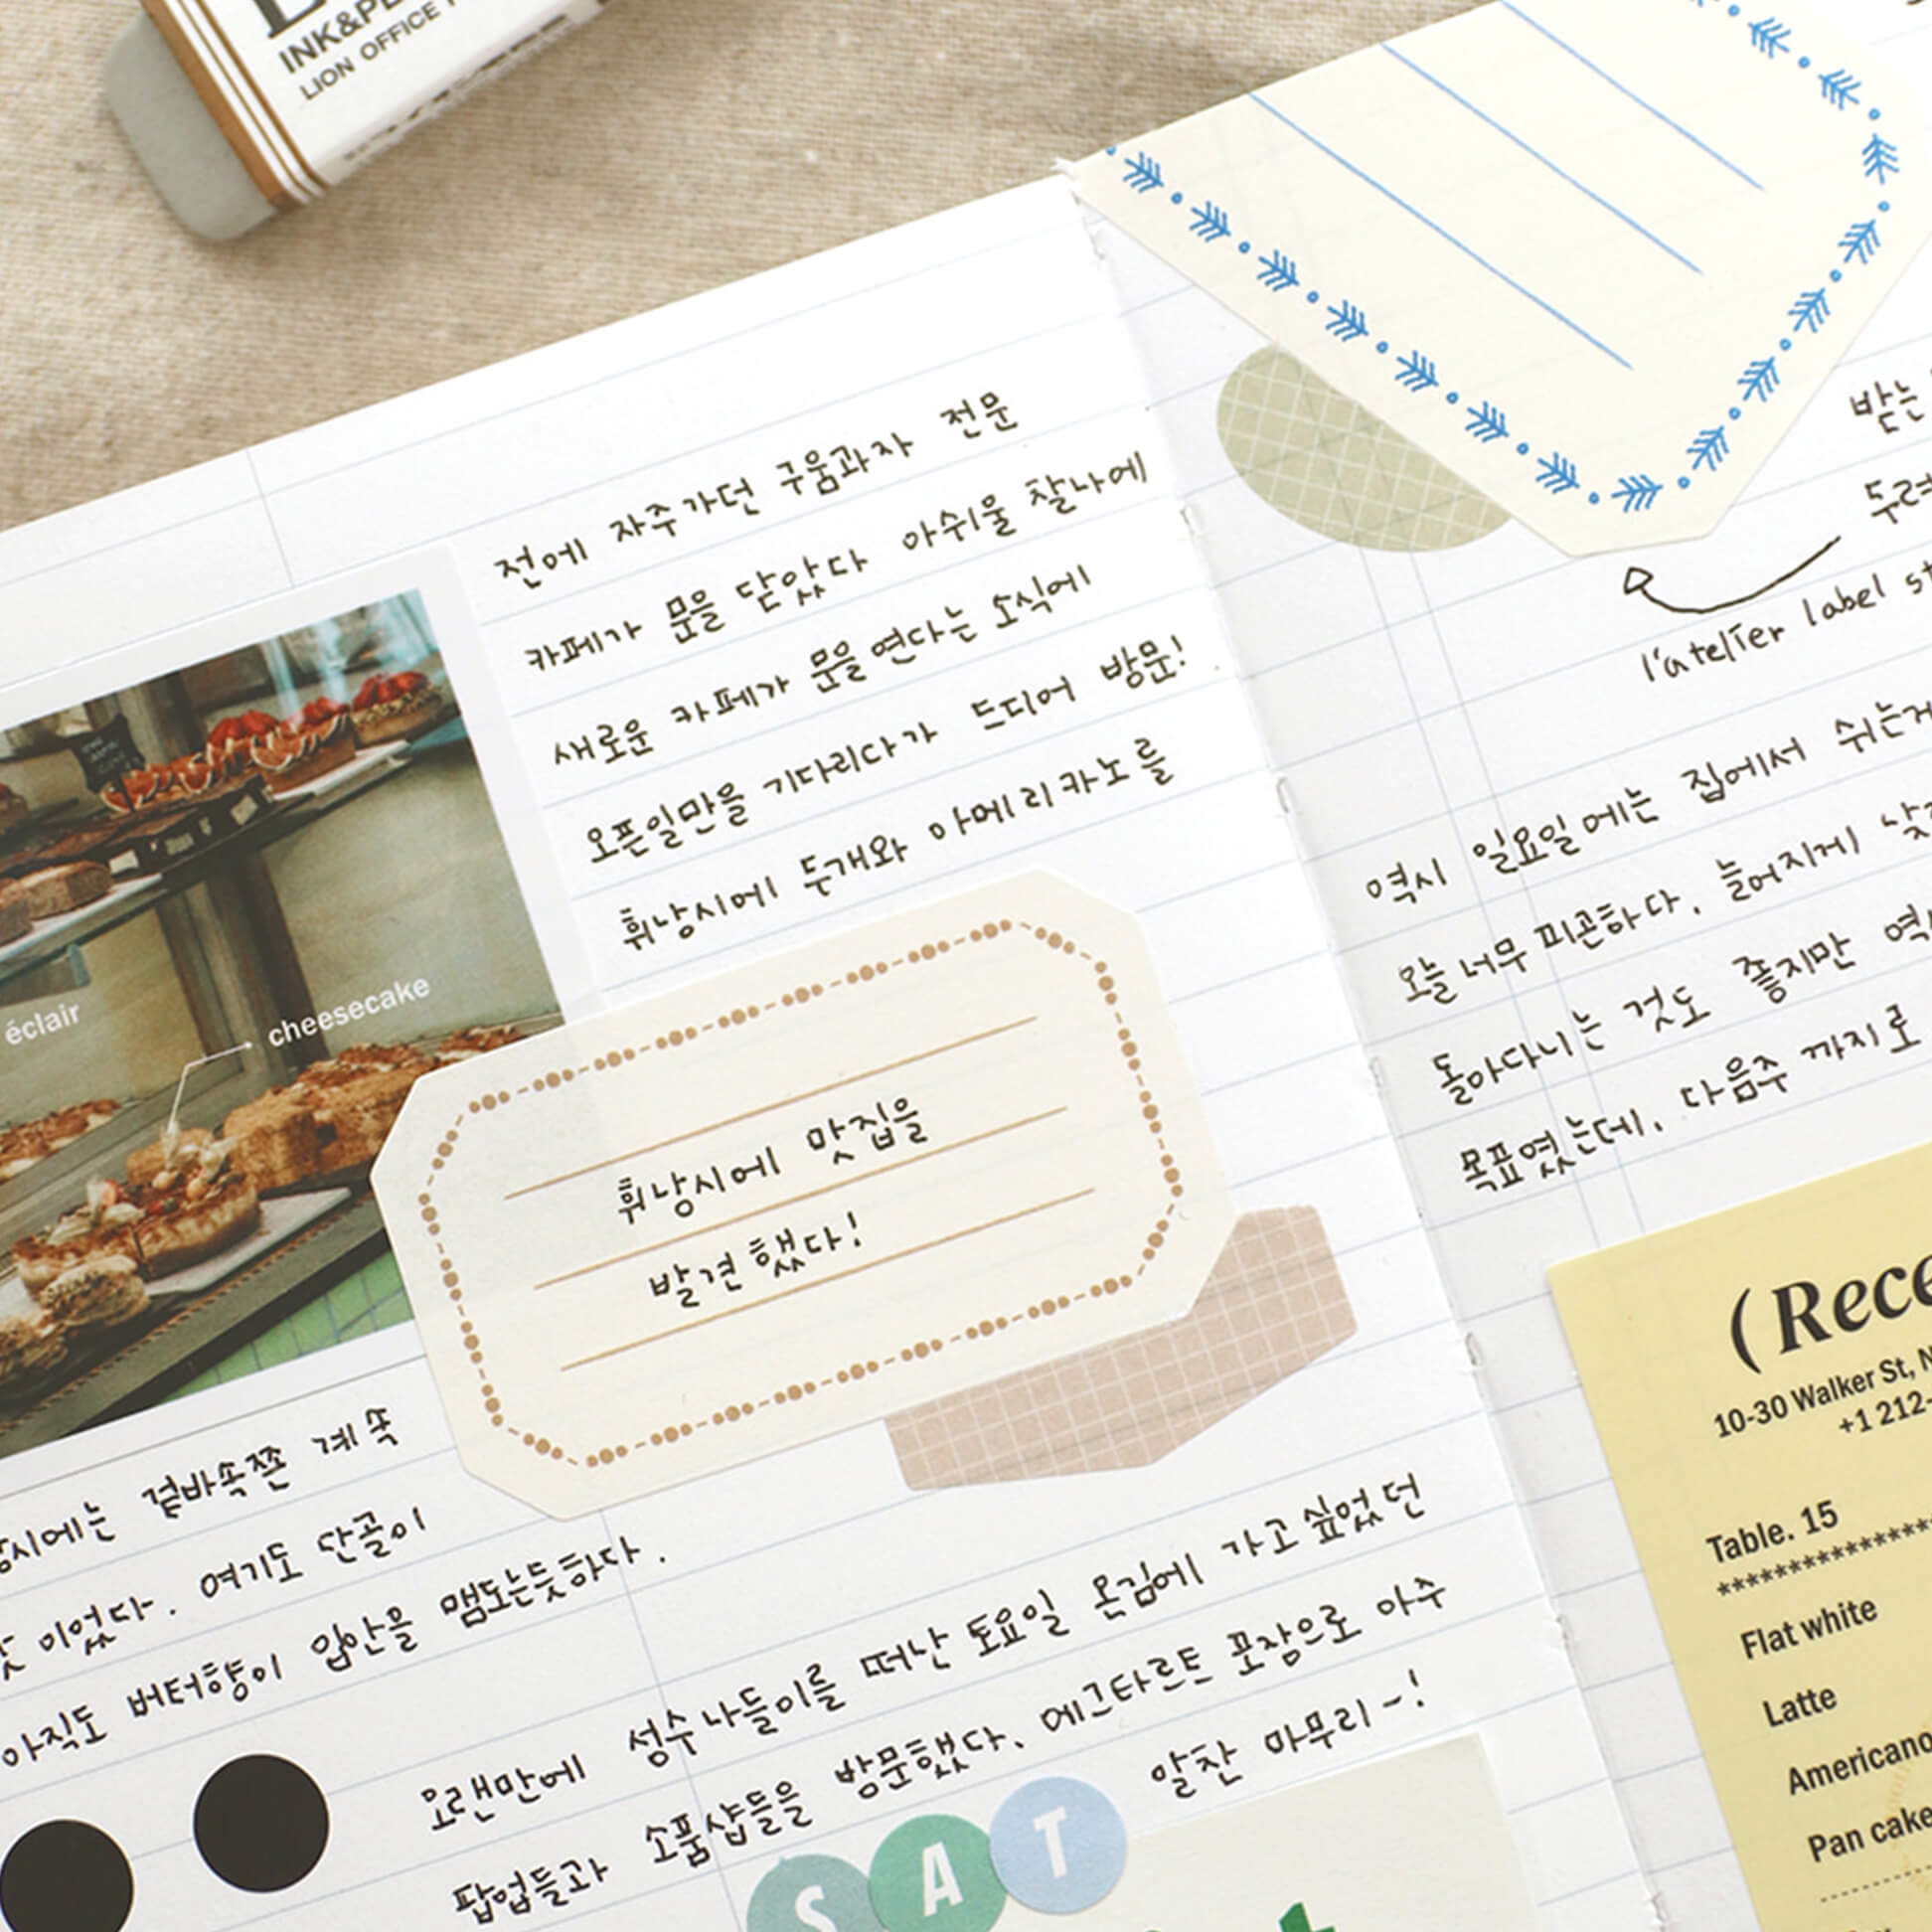 INK&PE
LION OFFICE
전에 자주가던 구움과자 전문
카페가 문을 닫았다 아쉬울 찰나에
새로운 카페가 문을 연다는 소식에
오픈일만을 기다리다가 드디어 방문!
휘낭시에 두개와 아메리카노를
éclair
cheesecake
휘낭시에 맛집을
발견했다!
낭시에는 겉바속쫀 계속
맛 이었다. 여기도 단골이
아직도 버터향이 입안을 맴도는듯하다.
오랜만에 성수나들이를 떠난 토요일 온김에 가고싶었던
팝업들과 소품샵들을 방문했다. 에그타르트 포장으로 아주
알찬 마무리~!
SAT
받는
두려
l'atelier label st
역시 일요일에는 집에서 쉬는게
오늘 너무 피곤하다. 늘어지게 낮
돌아다니는 것도 좋지만 역시
목표였는데, 다음주 까지로
(Rece
10-30 Walker St, N
+1 212-
Table. 15
****************
Flat white
Latte
Americano
Pan cake